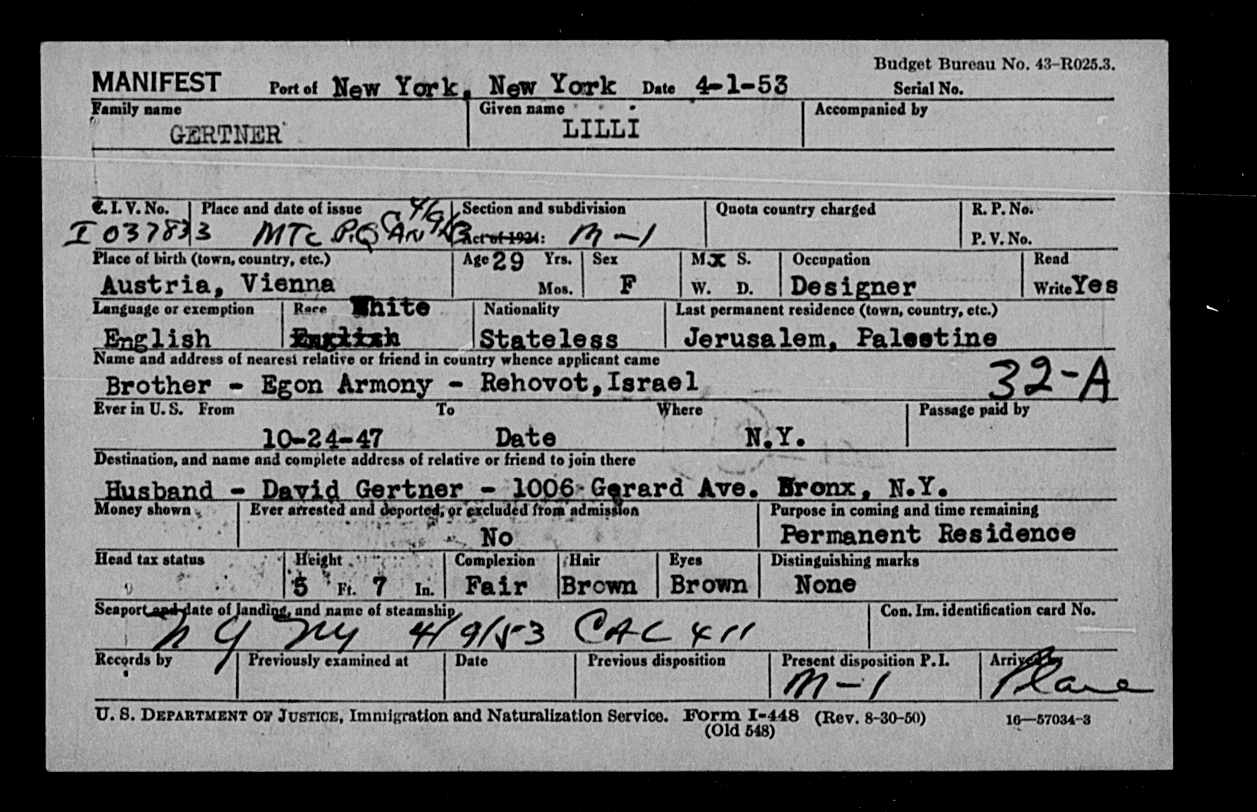 Budget Bureau No. 43-R025.3.
MANIFEST Port of New York, New York Date 4-1-53 Serial No.
Family name Given name Accompanied by
GERTNER LILLI
C. I. V. No. Place and date of issue 4/9/53 Section and subdivision Quota country charged R. P. No.
I 037833 MTL P.Q CAN Act of 1924: M-1 P. V. No.
Place of birth (town, country, etc.) Age 29 Yrs. Sex M. X S. Occupation Read
Austria, Vienna Mos. F W. D. Designer Write Yes
Language or exemption Race White Nationality Last permanent residence (town, country, etc.)
English English Stateless Jerusalem, Palestine
Name and address of nearest relative or friend in country whence applicant came
Brother - Egon Armony - Rehovot, Israel 32-A
Ever in U. S. From To Where Passage paid by
10-24-47 Date N.Y.
Destination, and name and complete address of relative or friend to join there
Husband - David Gertner - 1006 Gerard Ave. Bronx, N.Y.
Money shown Ever arrested and deported, or excluded from admission Purpose in coming and time remaining
No Permanent Residence
Head tax status Height Complexion Hair Eyes Distinguishing marks
5 Ft. 7 In. Fair Brown Brown None
Seaport and date of landing, and name of steamship Con. Im. identification card No.
N Y NY 4/9/53 CAL 411
Records by Previously examined at Date Previous disposition Present disposition P. I. Arrived by
M-1 Plane
U. S. DEPARTMENT OF JUSTICE, Immigration and Naturalization Service. Form I-448 (Rev. 8-30-50) 16—57034-3
(Old 548)